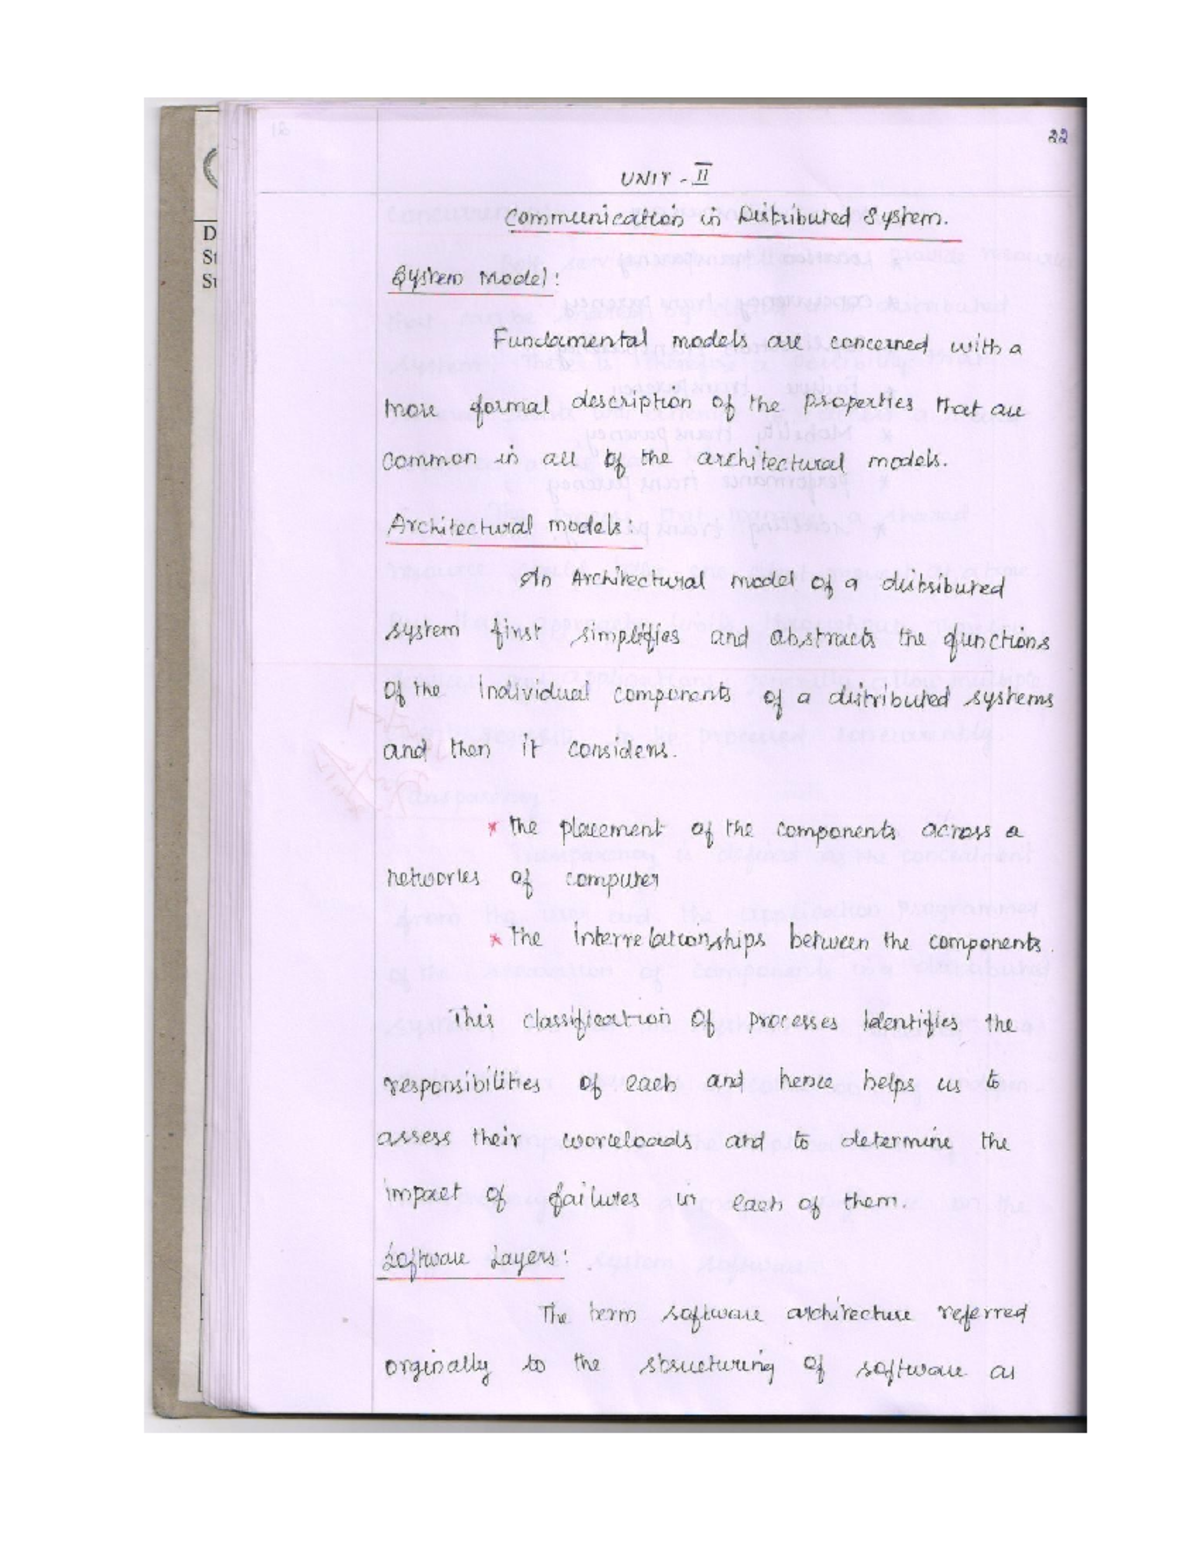 22
UNIT - II
Communication in Distributed System.
System Model:
Fundamental models are concerned with a
more formal description of the properties that are
common in all of the architectural models.
Architectural models:
An Architectural model of a distributed
system first simplifies and abstracts the functions
of the individual components of a distributed systems
and then it considers.
* the placement of the components across a
networks of computer
* the interrelationships between the components.
This classification of processes identifies the
responsibilities of each and hence helps us to
assess their workloads and to determine the
impact of failures in each of them.
Software Layers:
The term software architecture referred
orginally to the structuring of software as
D
St
Su